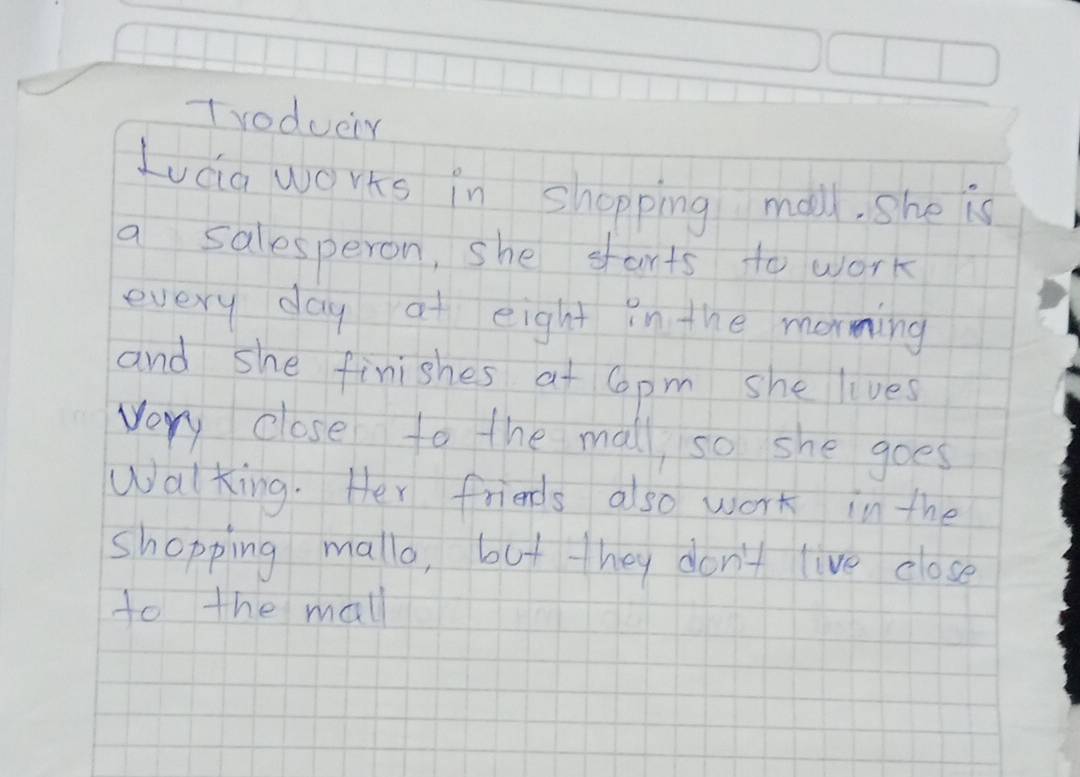 Traducir
Lucia works in shopping mall. She is
a salesperon, she starts to work
every day at eight in the morning
and she finishes at 6pm she lives
very close to the mall, so she goes
walking. Her friends also work in the
shopping malla, but they don't live close
to the mall